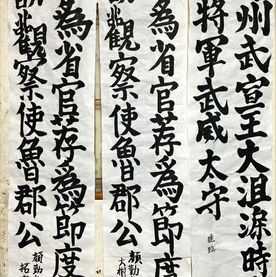 州武宣王大沮渠時
將軍武威太守
臨
為省官荐為節度
觀察使魯郡公
顏勤
為省官荐為節度
觀察使魯郡公
顏勤